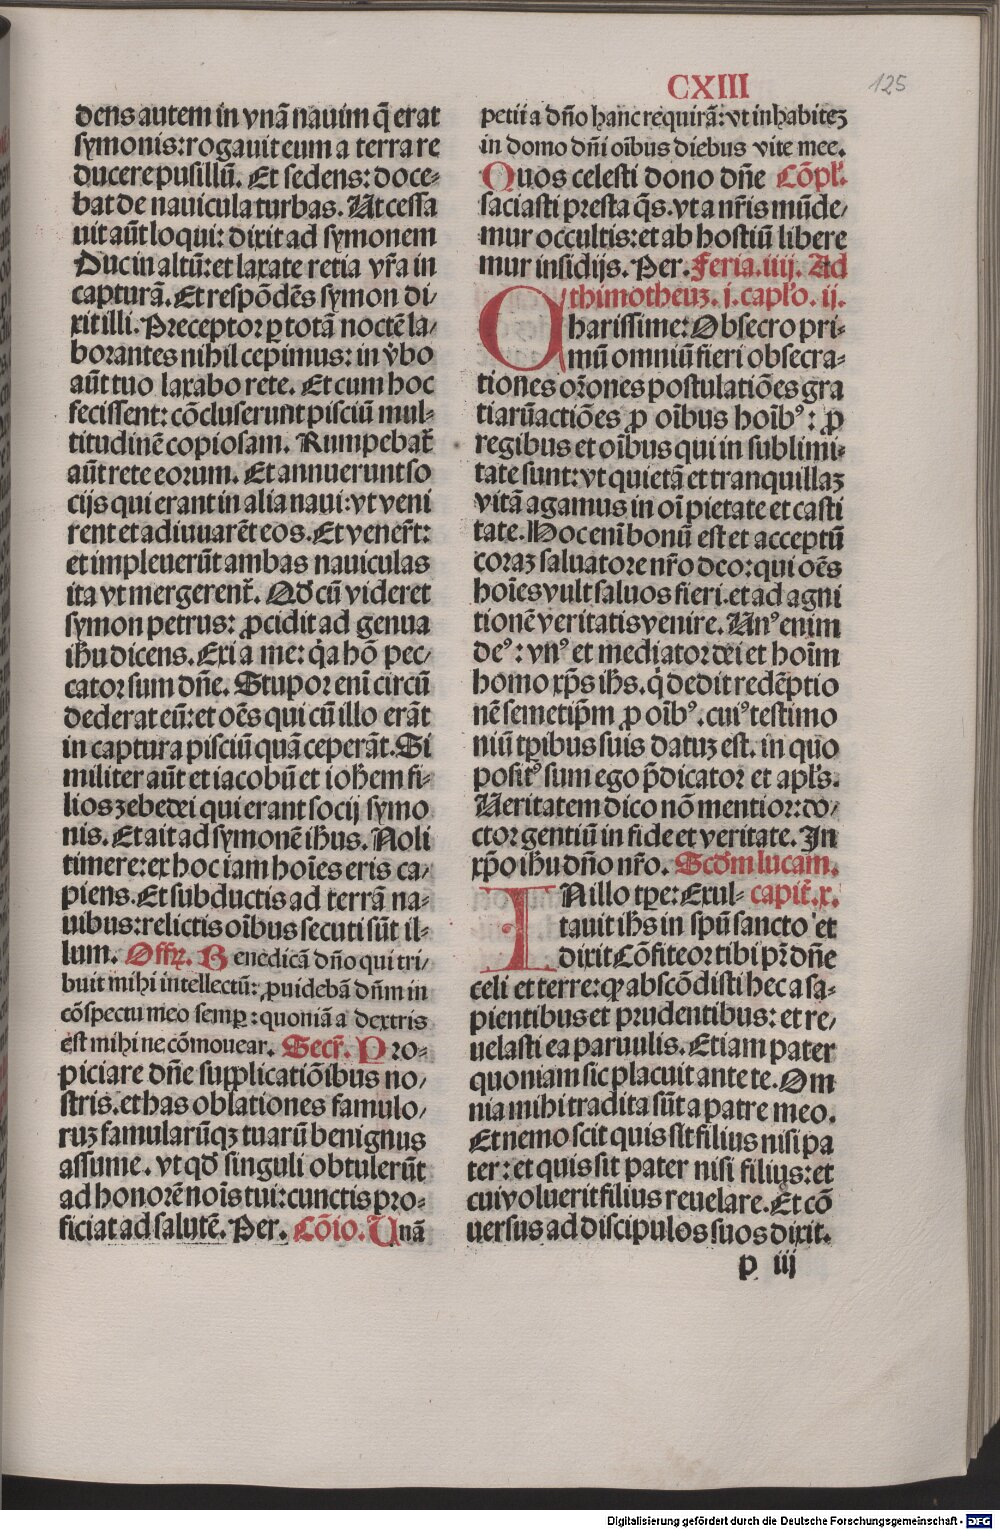 CXIII
125
dens autem in vnā nauim q̄ erat
symonis: rogauit eum a terra re
ducere pusillū. Et sedens: doce⸗
bat de nauicula turbas. Ut cessa
uit aūt loqui: dixit ad symonem
Duc in altū: et laxate retia vr̄a in
capturā. Et respōdēs symon di/
xit illi. Preceptor ꝑ totā noctē la/
borantes nihil cepimus: in v̓bo
aūt tuo laxabo rete. Et cum hoc
fecissent: cōcluserunt pisciū mul⸗
titudinē copiosam. Rumpebat᷑
aūt rete eorum. Et annuerunt so
cijs qui erant in alia naui: vt veni
rent et adiuuarēt eos. Et venerūt:
et impleuerūt ambas nauiculas
ita vt mergerent᷑. Qd̓ cū videret
symon petrus: ꝓcidit ad genua
ih̄u dicens. Exi a me: q̓a hō pec/
cator sum dn̄e. Stupor eni̅ circū
dederat eū: et oēs qui cū illo erāt
in captura pisciū quā ceperāt. Si
militer aūt et iacobū et ioh̄em fi⸗
lios zebedei qui erant socij symo
nis. Et ait ad symonē ih̄us. Noli
timere: ex hoc iam hoīes eris ca/
piens. Et subductis ad terrā na⸗
uibus: relictis oībus secuti sūt il⸗
lum. Offꝝ. Benedicā dn̄o qui tri/
buit mihi intellectū: ꝓuidebā dn̄m in
cōspectu meo semꝑ: quoniā a dextris
est mihi ne cōmouear. Secr̄. Pro⸗
piciare dn̄e supplicatiōibus no/
stris. et has oblationes famulo/
ruꝫ famularūqꝫ tuarū benignus
assume. vt qd̓ singuli obtulerūt
ad honorē noīs tui: cunctis pro⸗
ficiat ad salutē. Per. Cōio. Unā
petii a dn̄o hanc requirā: vt inhabiteꝫ
in domo dn̄i oībus diebus vite mee.
Quos celesti dono dn̄e Cōpl̄.
saciasti presta q̄s. vt a nr̄is mūde/
mur occultis: et ab hostiū libere
mur insidijs. Per. Feria. iiij. Ad
thimotheuꝫ. i. capl̓o. ij.
Charissime: Obsecro pri⸗
mū omniū fieri obsecra⸗
tiones or̄ones postulatiōes gra
tiarūactiōes ꝓ oībus hoībꝰ: ꝓ
regibus et oībus qui in sublimi⸗
tate sunt: vt quietā et tranquillaꝫ
vitā agamus in oī pietate et casti
tate. Hoc enī bonū est et acceptū
coraꝫ saluatore nr̄o deo: qui oēs
hoīes vult saluos fieri. et ad agni
tionē veritatis venire. Unꝰ enim
deꝰ: vnꝰ et mediator dei et hoīm
homo xp̄s ih̄s. q̓ dedit redēptio
nē semetip̄m ꝓ oībꝰ. cuiꝰ testimo
niū tp̄ibus suis datuꝫ est. in quo
positꝰ sum ego p̄dicator et apl̓s.
Veritatem dico nō mentior: do/
ctor gentiū in fide et veritate. In
xp̄o ih̄u dn̄o nr̄o. Scd̓m lucam.
IN illo tp̄e: Exul⸗ capit̄. x.
tauit ih̄s in sp̄u sancto et
dixit Cōfiteor tibi pr̄ dn̄e
celi et terre: qꝛ abscōdisti hec a sa⸗
pientibus et prudentibus: et re/
uelasti ea paruulis. Etiam pater
quoniam sic placuit ante te. Om
nia mihi tradita sūt a patre meo.
Et nemo scit quis sit filius nisi pa
ter: et quis sit pater nisi filius: et
cui voluerit filius reuelare. Et cō
uersus ad discipulos suos dixit.
p iij
Digitalisierung gefördert durch die Deutsche Forschungsgemeinschaft - DFG